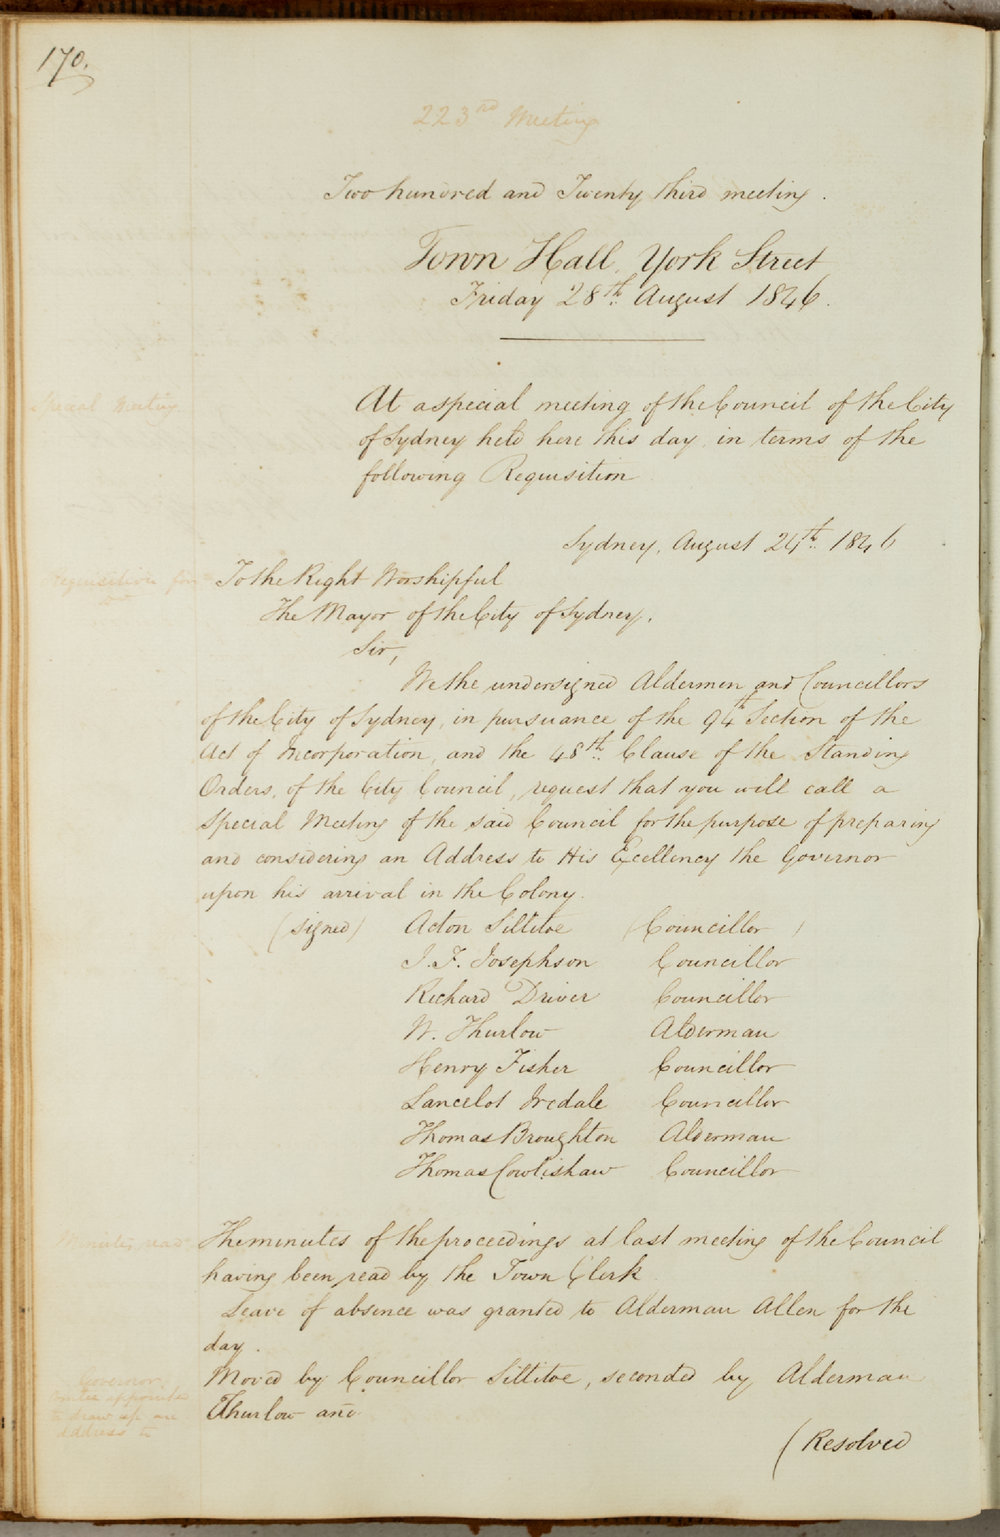 170.
223rd Meeting
Two hundred and Twenty third meeting.
Town Hall, York Street
Friday 28th August 1846.
Special Meeting
At a special meeting of the Council of the City
of Sydney held here this day in terms of the
following Requisition
Sydney, August 24th 1846
Requisition for
To the Right Worshipful
The Mayor of the City of Sydney.
Sir,
We the undersigned Aldermen and Councillors
of the City of Sydney, in pursuance of the 94th Section of the
Act of Incorporation, and the 48th Clause of the Standing
Orders, of the City Council, request that you will call a
Special Meeting of the said Council for the purpose of preparing
and considering an Address to His Excellency the Governor
upon his arrival in the Colony.
(signed) Acton Sillitoe (Councillor)
J. F. Josephson Councillor
Richard Driver Councillor
W. Thurlow Alderman
Henry Fisher Councillor
Lancelot Iredale Councillor
Thomas Broughton Alderman
Thomas Cowlishaw Councillor
Minutes read
The minutes of the proceedings at last meeting of the Council
having been read by the Town Clerk
Leave of absence was granted to Alderman Allen for the
day.
Moved by Councillor Sillitoe, seconded by Alderman
Thurlow and
Governor,
appointed
to draw up an
address to
(Resolved